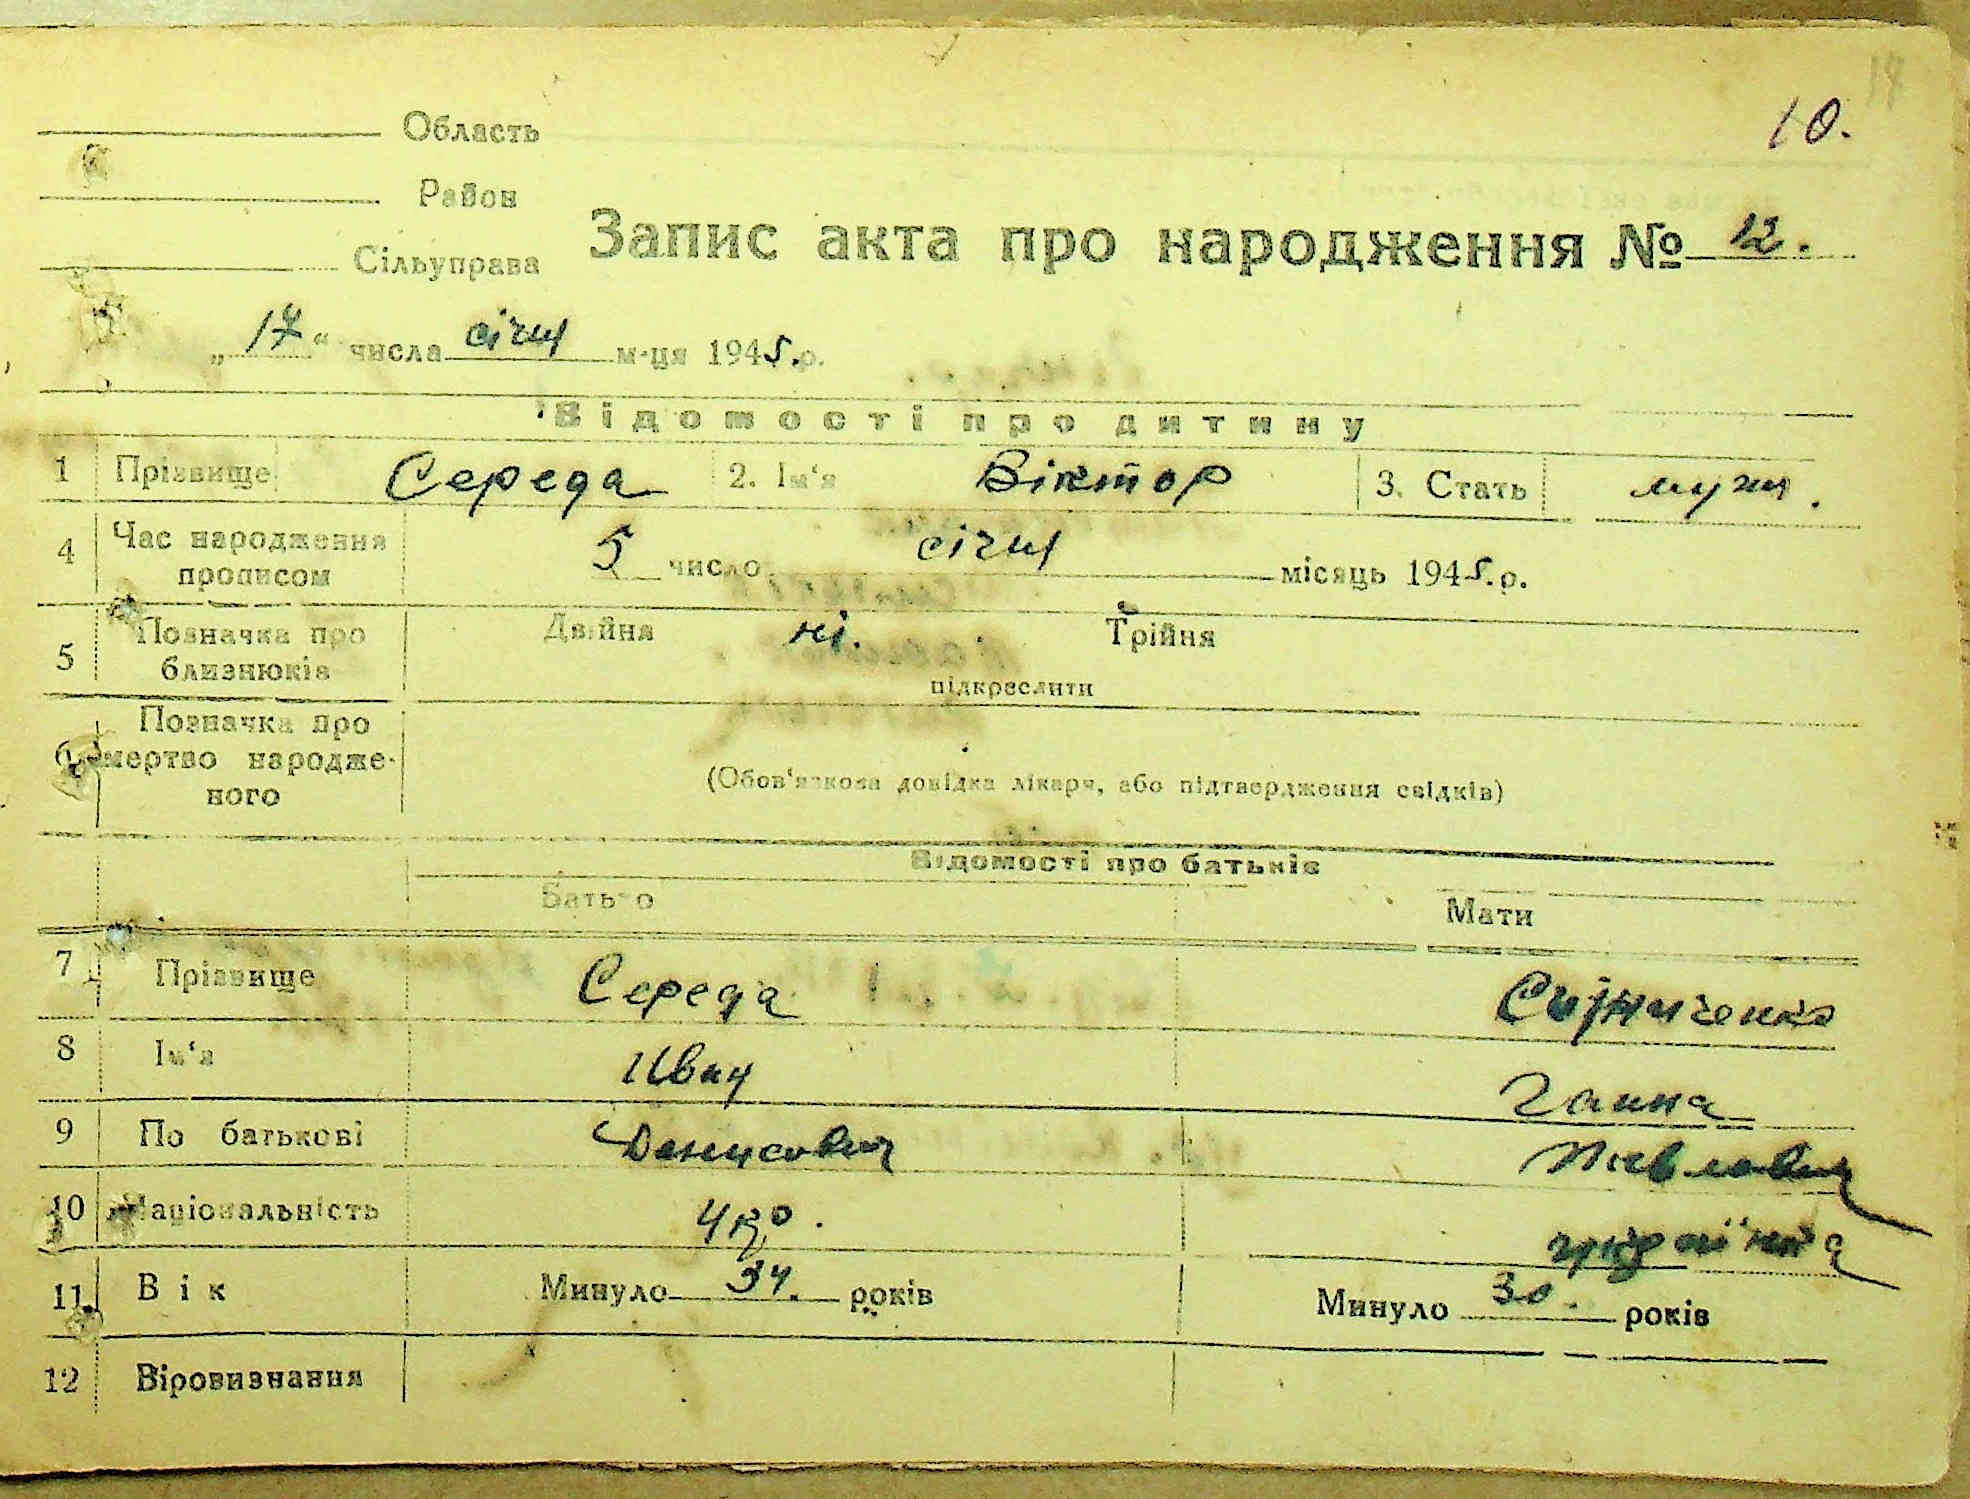 10.
Область
Район
Сільуправа
Запис акта про народження № 12.
„17“ числа січня м-ця 1945.р.
Відомості про дитину
1 Прізвище Середа 2. Ім‘я Віктор 3. Стать муж.
4 Час народження прописом 5 число січня місяць 1945.р.
5 Позначка про близнюків Двійня ні. Трійня
підкреслити
6 Позначка про мертво народженого
(Обов‘язкова довідка лікаря, або підтвердження свідків)
Відомості про батьків
Батько Мати
7 Прізвище Середа
8 Ім‘я Иван Ганна
9 По батькові Денисович Павлович
10 Національність укр. українка
11 Вік Минуло 34. років Минуло 30. років
12 Віровизнання